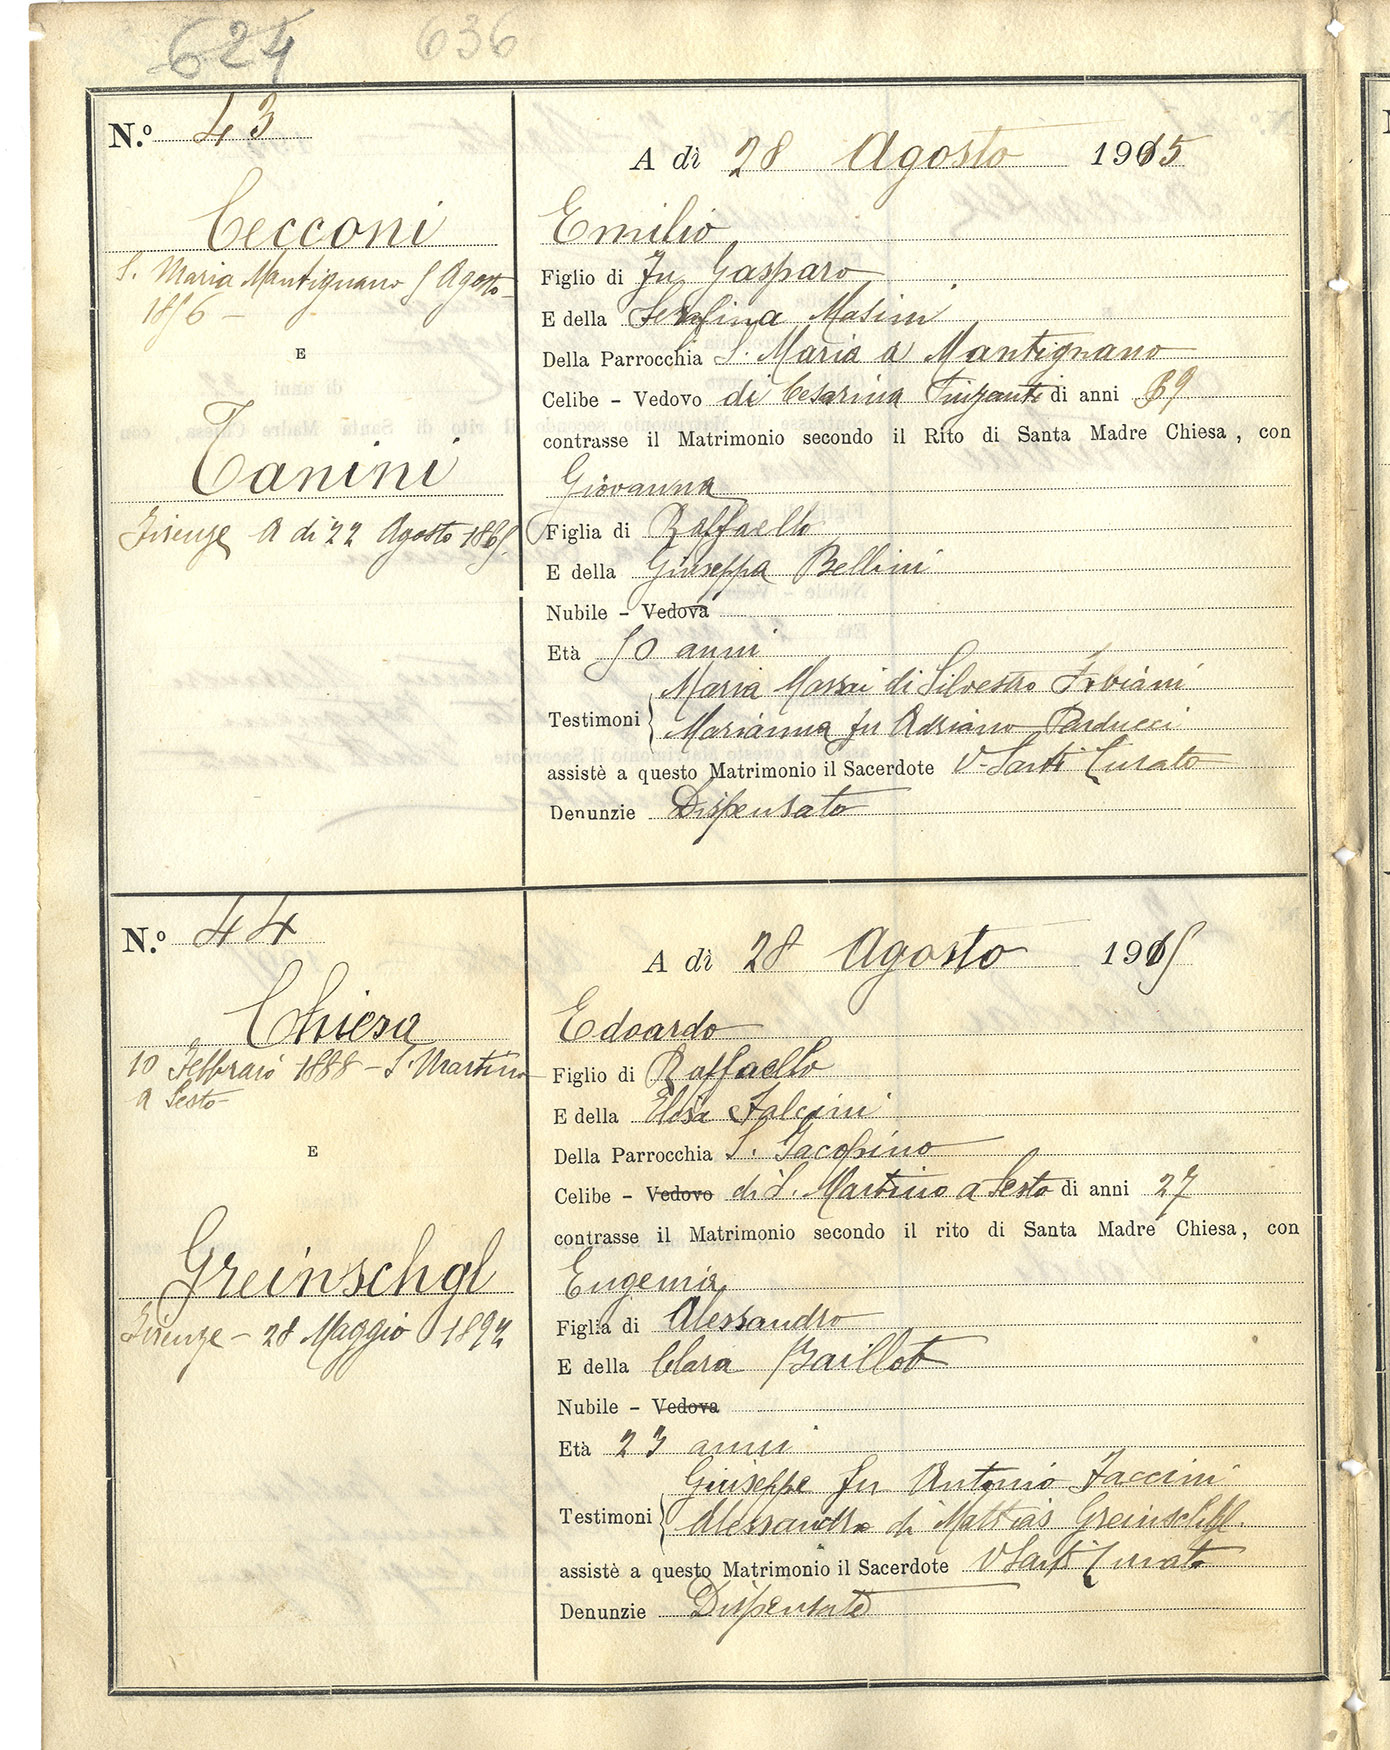 624 636
N.º 43
A dì 28 Agosto 1915
Cecconi
Emilio
S. Maria Mantignano 5 Agosto
1856 -
Figlio di Fu Gasparo
E della Serafina Masini
E
Della Parrocchia S. Maria a Mantignano
Celibe - Vedovo di Cesarina di anni 59
contrasse il Matrimonio secondo il Rito di Santa Madre Chiesa, con
Tanini
Giovanna
Firenze A di 22 Agosto 1865
Figlia di Raffaello
E della Giuseppa Bellini
Nubile - Vedova
Età 50 anni
Testimoni { Maria Massai di Silvestro Fabiani
Marianna fu Adriano Parducci
assistè a questo Matrimonio il Sacerdote V. Sarti Curato
Denunzie Dispensato
N.º 44
A dì 28 Agosto 1915
Chiesa
Edoardo
10 Febbraio 1888 - S. Martino
a Sesto
Figlio di Raffaello
E della Elisa Falcini
E
Della Parrocchia S. Jacopino
Celibe - Vedovo di S. Martino a Sesto di anni 27
contrasse il Matrimonio secondo il rito di Santa Madre Chiesa, con
Greinschgl
Eugenia
Firenze - 28 Maggio 1892
Figlia di Alessandro
E della Clara Baillot
Nubile - Vedova
Età 23 anni
Testimoni { Giuseppe fu Antonio Faccini
Alessandro di Mattias Greinschgl
assistè a questo Matrimonio il Sacerdote V Sarti Curato
Denunzie Dispensato